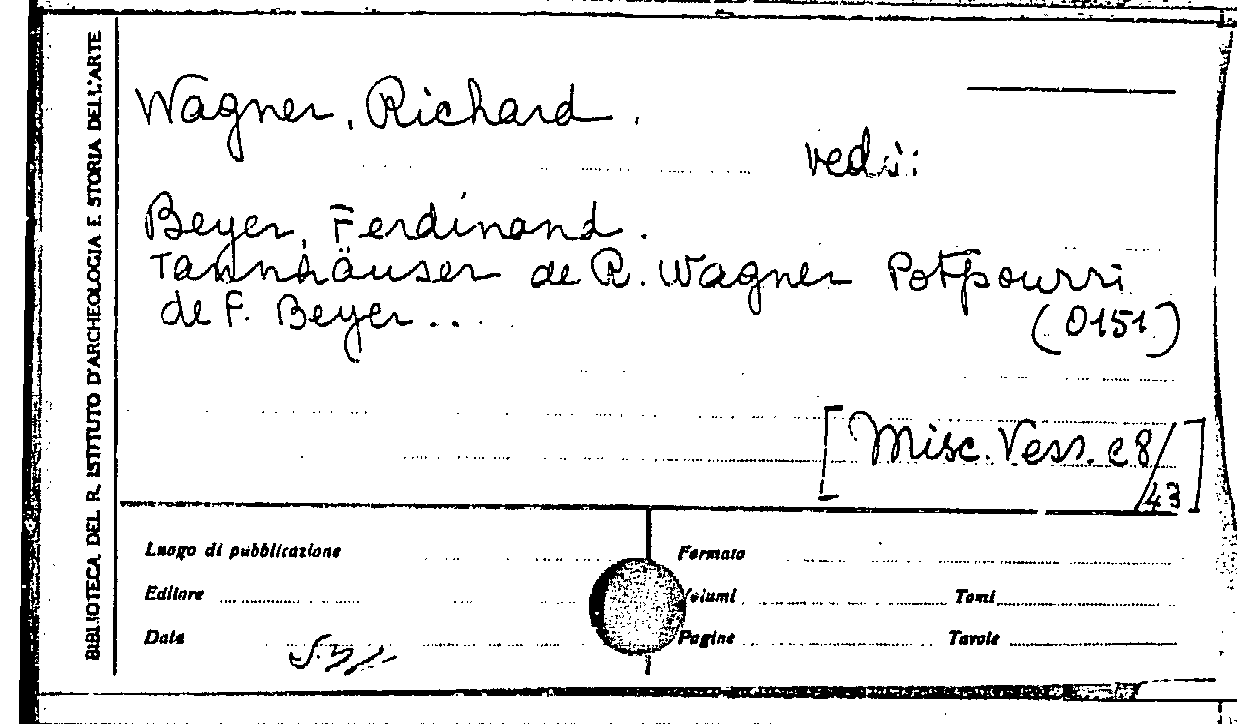 BIBLIOTECA DEL R. ISTITUTO D'ARCHEOLOGIA E STORIA DELL'ARTE
Wagner, Richard.
vedi:
Beyer, Ferdinand.
Tannhäuser de R. Wagner Potpourri
de F. Beyer...
(0151)
[Misc. Vess. c8/43]
Luogo di pubblicazione
Formato
Editore
Volumi
Tomi
Data
Pagine
Tavole